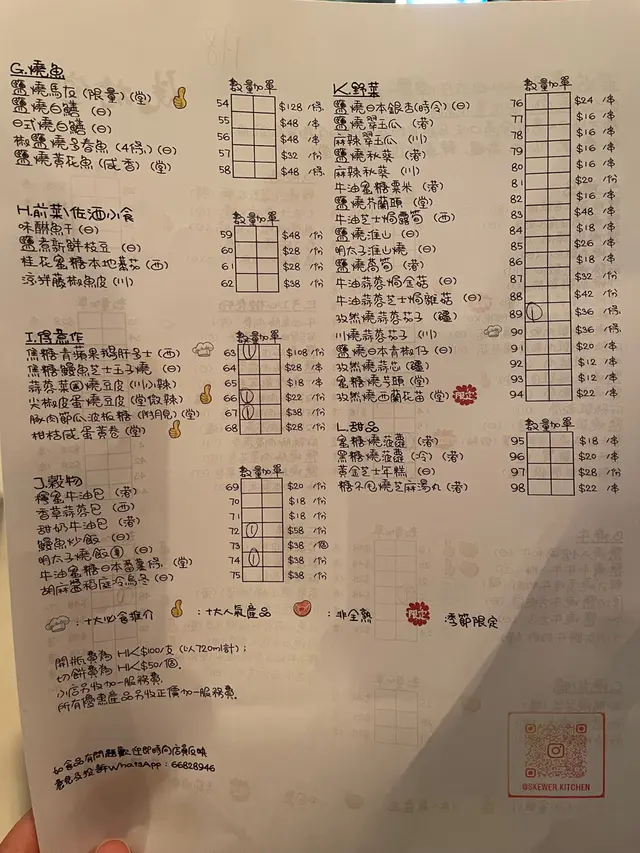 G.燒魚 數量 加單
鹽燒馬友 (限量) (堂) 54 $128 /條
鹽燒白鱔 (日) 55 $48 /本
日式燒白鱔 (日) 56 $48 /本
椒鹽燒多春魚 (4條) (日) 57 $32 /份
鹽燒黃花魚 (咸香) (堂) 58 $48 /條
H.前菜\佐酒小食 數量 加單
味醂魚干 (日) 59 $48 /份
鹽煮新鮮枝豆 (日) 60 $28 /份
桂花蜜糖本地蕃茄 (西) 61 $28 /份
涼拌藤椒魚皮 (川) 62 $38 /份
I.得意作 數量 加單
焦糖青蘋果鵝肝多士 (西) 63 1 $108 /份
焦糖鰻魚芝士玉子燒 (日) 64 $28 /本
蒜蓉菜燒豆皮 (川小辣) 65 $18 /本
尖椒皮蛋燒豆皮 (堂微辣) 66 1 $22 /份
豚肉節瓜波板糖 (附月見) (堂) 67 1 $38 /份
柑桔咸蛋黃卷 (堂) 68 $28 /份
J.穀物 數量 加單
蜂蜜牛油包 (港) 69 $20 /份
香草蒜蓉包 (西) 70 $18 /份
甜奶牛油包 (港) 71 $18 /份
鰻魚炒飯 (日) 72 1 $58 /份
明太子燒飯 (日) 73 $38 /個
牛油蜜糖日本蕃薯條 (堂) 74 1 $38 /份
胡麻醬稻庭冷烏冬 (日) 75 $38 /份
K.野菜 數量 加單
鹽燒日本銀杏(時令) (日) 76 $24 /本
鹽燒翠玉瓜 (港) 77 $16 /本
麻辣翠玉瓜 (川) 78 $16 /本
鹽燒秋葵 (港) 79 $16 /本
麻辣秋葵 (川) 80 $16 /本
牛油蜜糖粟米 (港) 81 $20 /份
鹽燒芥蘭頭 (堂) 82 $16 /本
牛油芝士焗露筍 (西) 83 $48 /本
鹽燒淮山 (日) 84 $18 /本
明太子淮山燒 (日) 85 $26 /本
鹽燒萵筍 (港) 86 $18 /本
牛油蒜蓉焗金菇 (日) 87 $32 /份
牛油蒜蓉芝士焗雜菇 (日) 88 $42 /份
孜然燒蒜蓉茄子 (疆) 89 1 $36 /條
川燒蒜蓉茄子 (川) 90 $36 /條
鹽燒日本青椒仔 (日) 91 $18 /份
孜然燒蒜芯 (疆) 92 $12 /本
蜜糖燒芋頭 (堂) 93 $12 /本
孜然燒西蘭花苗 (堂) 限定 94 $22 /本
L.甜品
蜜糖燒菠蘿 (港) 95 $18 /本
黑糖燒菠蘿 (冷) (港) 96 $20 /本
黃金芝士年糕 (日) 97 $28 /份
糖不甩燒芝麻湯丸 (港) 98 $22 /本
:十大必食推介 :十大人氣產品 :非全熟 限定 :季節限定
開瓶費為 HK$100/支 (以720ml計) ;
切餅費為 HK$50/個.
小店另收加一服務費.
所有優惠產品另收正價加一服務費.
如食品有問題歡迎即時向店員反映
意見及投訴 WhatsApp : 66828946
@SKEWER.KITCHEN